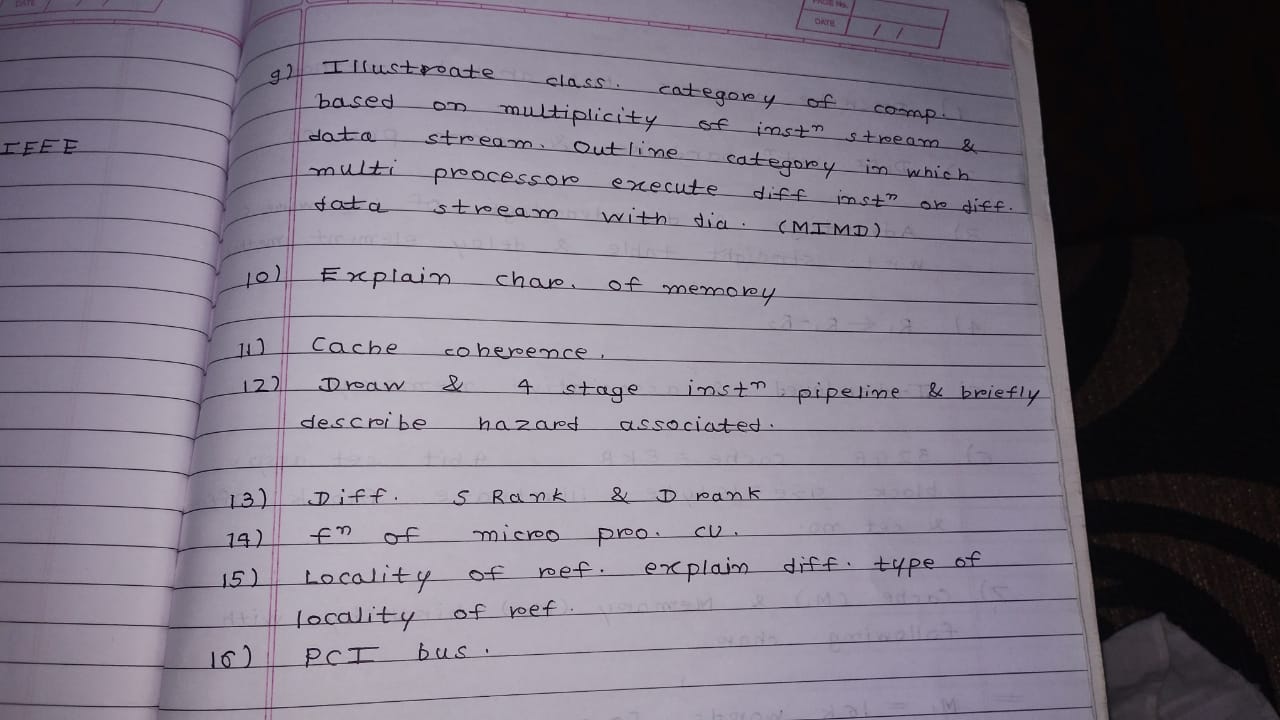 DATE
PAGE No.
DATE
IEEE
9) Illustroate class. category of comp.
based on multiplicity of instⁿ stream &
data stream. Outline category in which
multi processor execute diff instⁿ or diff.
data stream with dia. (MIMD)
10) Explain char. of memory
11) Cache coherence.
12) Draw & 4 stage instⁿ pipeline & briefly
describe hazard associated.
13) Diff. S Rank & D rank
14) fⁿ of micro pro. CU.
15) Locality of ref. explain diff. type of
locality of ref.
16) PCI bus.